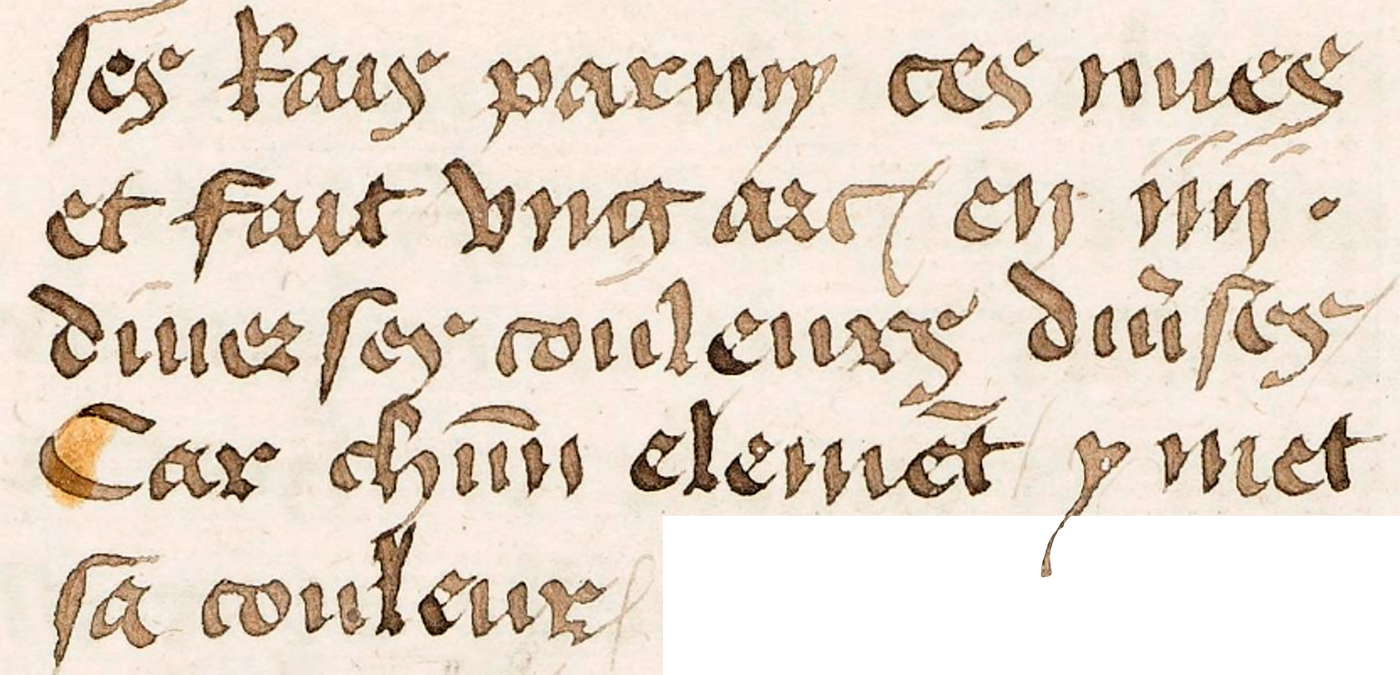 ses Rais parmy ces nuees
et fait vng arc / en iiii .
diuerses couleurs diu̅ses /
Car chu̅n eleme̅t / y met
sa couleur /